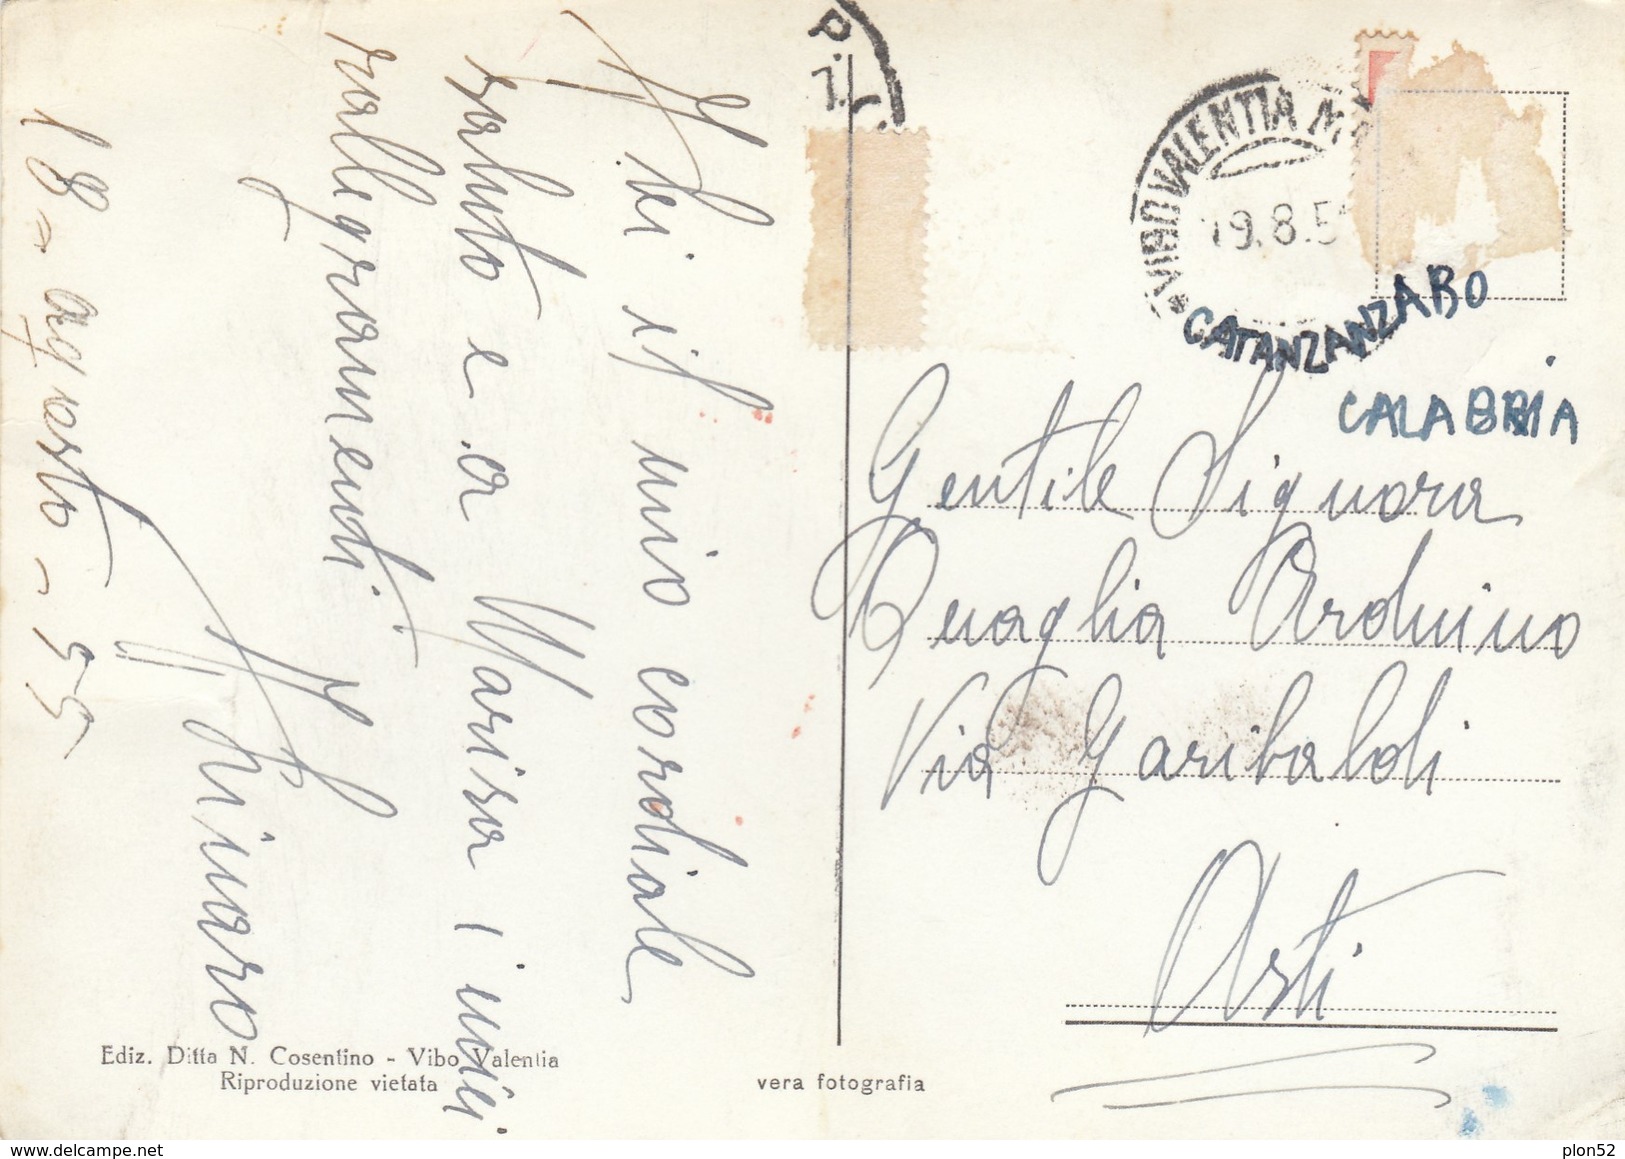 A lei il mio cordiale
saluto e a Marisa i miei
rallegramenti
18 = agosto = 55
P.
VIBO VALENTIA M
19.8.5
CATANZANZARO
CALABRIA
Gentile Signora
Quaglia Arduino
Via Garibaldi
Asti
Ediz. Ditta N. Cosentino - Vibo Valentia
Riproduzione vietata
vera fotografia
plon52